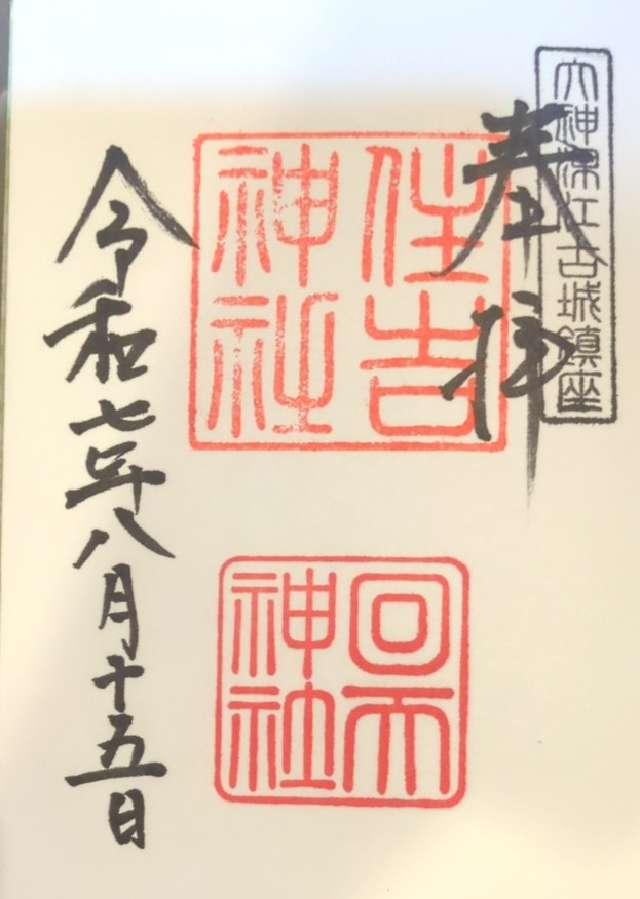 大神深江古城鎮座
奉拝
住吉
神社
回天
神社
令和七年八月十五日